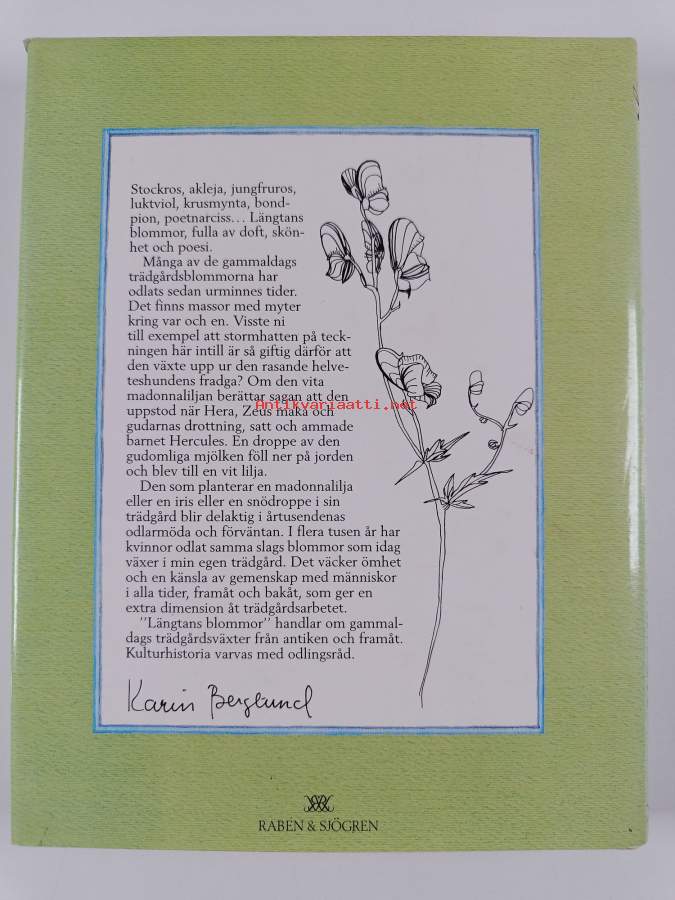 Stockros, akleja, jungfruros,
luktviol, krusmynta, bond-
pion, poetnarciss... Längtans
blommor, fulla av doft, skön-
het och poesi.
Många av de gammaldags
trädgårdsblommorna har
odlats sedan urminnes tider.
Det finns massor med myter
kring var och en. Visste ni
till exempel att stormhatten på teck-
ningen här intill är så giftig därför att
den växte upp ur den rasande helve-
teshundens fradga? Om den vita
madonnaliljan berättar sagan att den
uppstod när Hera, Zeus maka och
Antikvariaatti.net
gudarnas drottning, satt och ammade
barnet Hercules. En droppe av den
gudomliga mjölken föll ner på jorden
och blev till en vit lilja.
Den som planterar en madonnalilja
eller en iris eller en snödroppe i sin
trädgård blir delaktig i årtusendenas
odlarmöda och förväntan. I flera tusen år har
kvinnor odlat samma slags blommor som idag
växer i min egen trädgård. Det väcker ömhet
och en känsla av gemenskap med människor
i alla tider, framåt och bakåt, som ger en
extra dimension åt trädgårdsarbetet.
"Längtans blommor" handlar om gammal-
dags trädgårdsväxter från antiken och framåt.
Kulturhistoria varvas med odlingsråd.
Karin Berglund
RABÉN & SJÖGREN